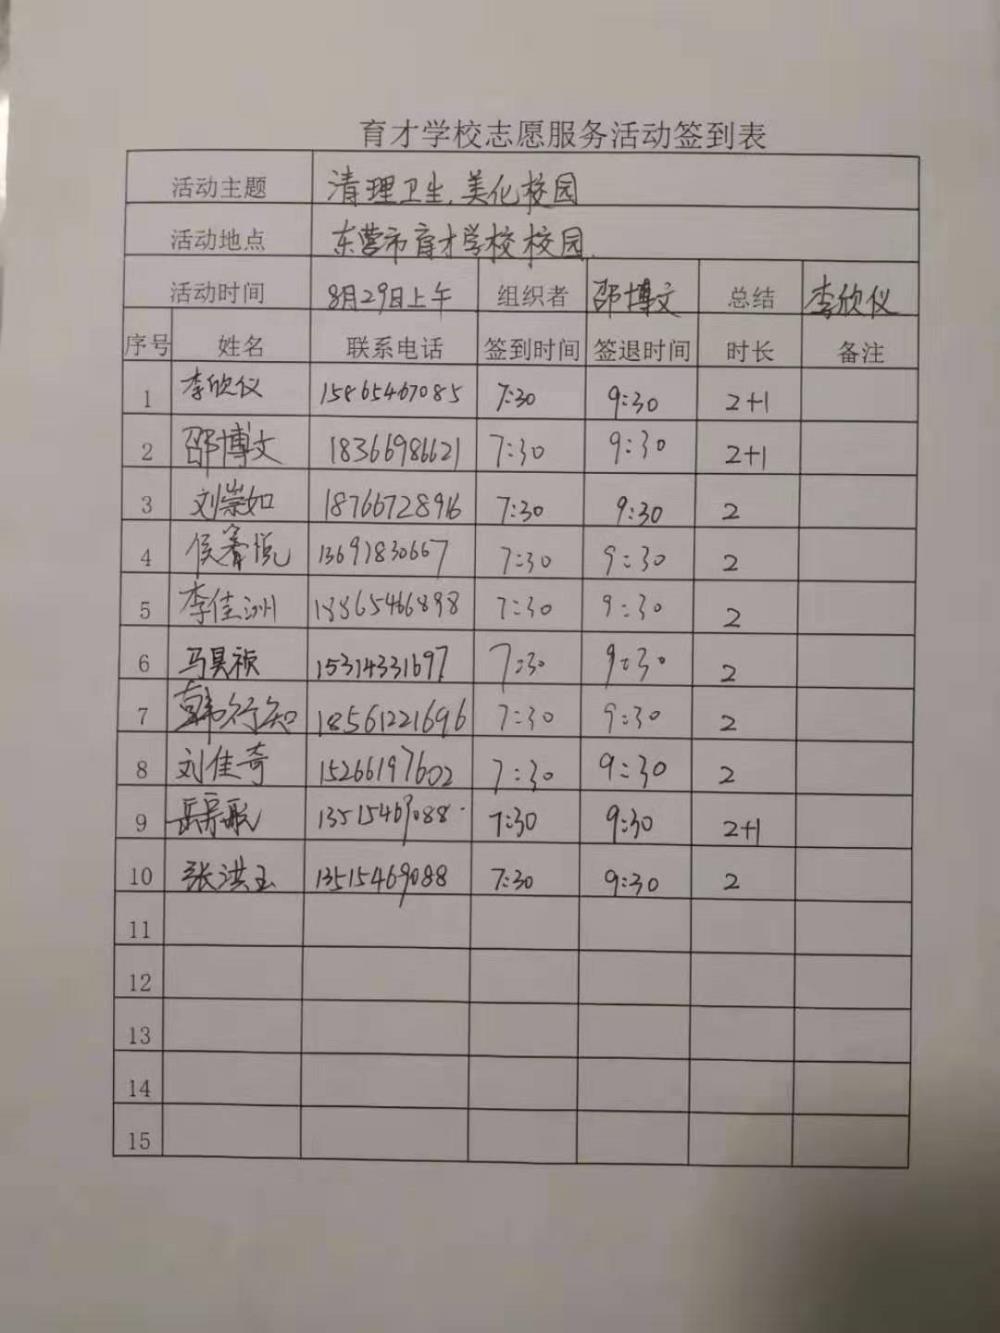 育才学校志愿服务活动签到表
活动主题 清理卫生,美化校园
活动地点 东营市育才学校校园.
活动时间 8月29日上午 组织者 邵博文 总结 李欣仪
序号 姓名 联系电话 签到时间 签退时间 时长 备注
1 李欣仪 15865467085 7:30 9:30 2+1
2 邵博文 18366986621 7:30 9:30 2+1
3 刘崇如 18766728916 7:30 9:30 2
4 侯 悦 13691830667 7:30 9:30 2
5 李佳洲 18865466898 7:30 9:30 2
6 马昊祯 15314331697 7:30 9:30 2
7 韩行知 18561221696 7:30 9:30 2
8 刘佳奇 15266197602 7:30 9:30 2
9 岳 13515469088 7:30 9:30 2+1
10 张洪玉 13515469088 7:30 9:30 2
11
12
13
14
15